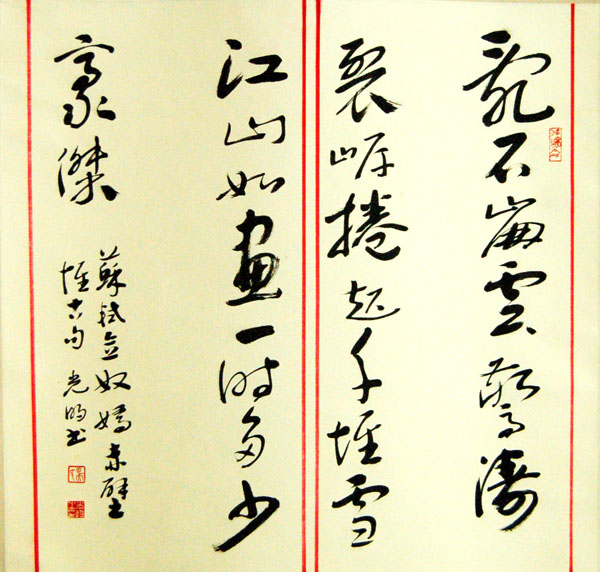 亂石崩雲驚濤
裂岸捲起千堆雪
江山如畫一時多少
豪傑
蘇軾念奴嬌赤壁
懷古句 光明书